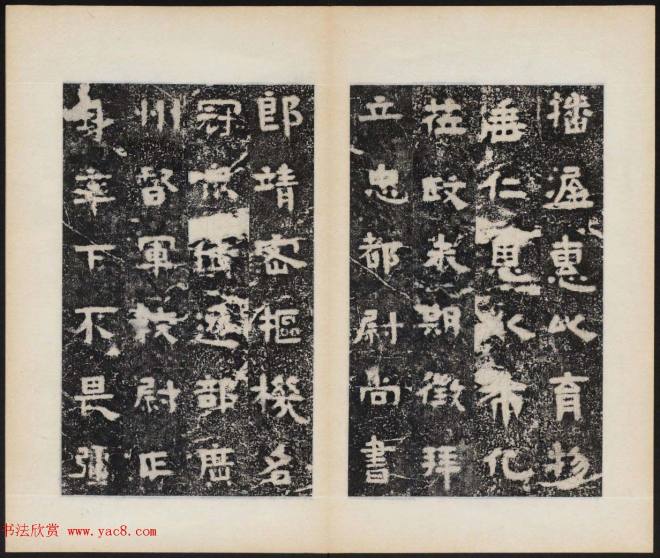 播渥惠以育物
垂仁恩以布化
莅政未期徵拜
立忠都尉尚書
郎靖密樞機名
冠衆僚遷部廣
州督軍校尉正
身率下不畏強
书法欣赏 www.yac8.com